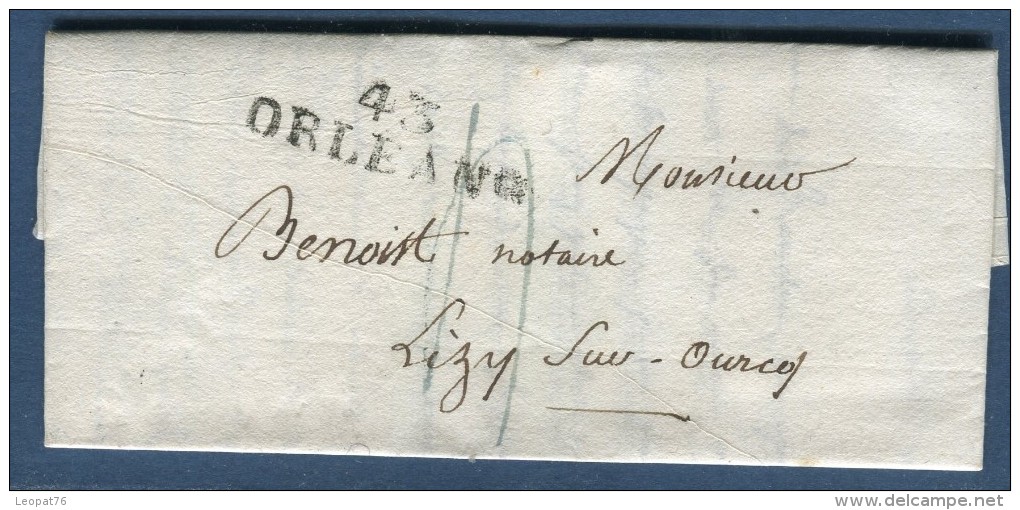 43
ORLEANS
Monsieur
Benoist notaire
Lizy Sur-Ourcq
Leopat76
www.delcampe.net